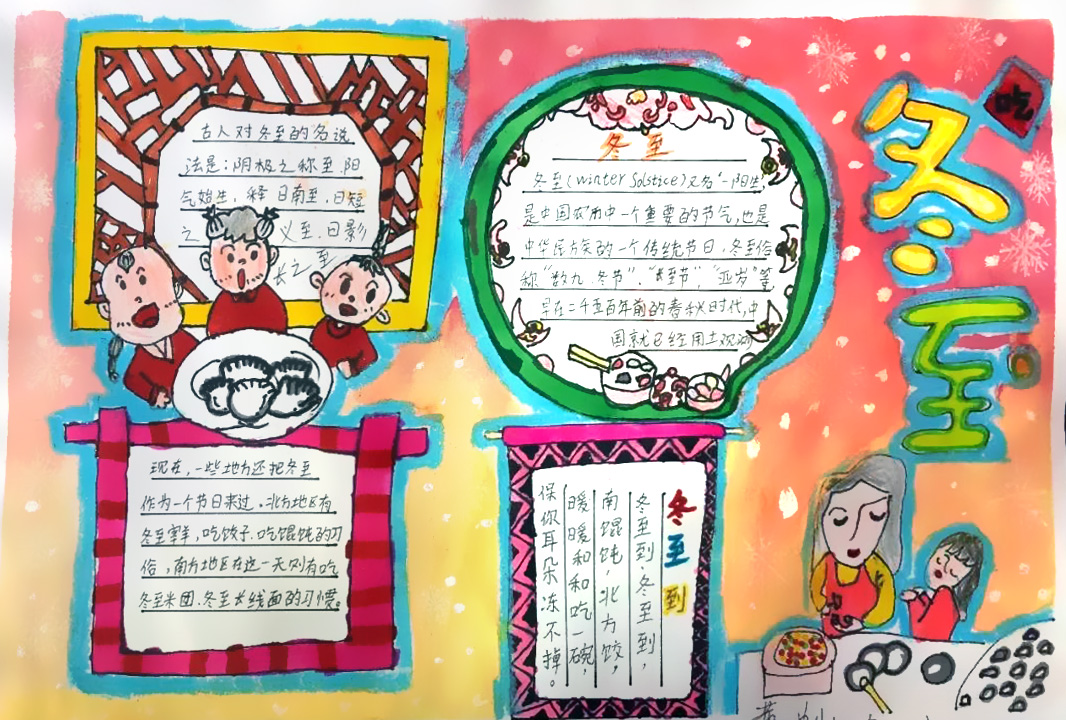 古人对冬至的名说
法是:阴极之称至.阳
气始生，释 日南至，日短
之 义至.日影
长之至
冬至
冬至(winter Solstice)又名"一阳生
是中国农历中一个重要的节气,也是
中华民族的一个传统节日,冬至俗
称"数九、冬节","长至节","亚岁"等
早在二千五百年前的春秋时代,中
国就已经用土观测
吃
冬至
现在，一些地方还把冬至
作为一个节日来过.北方地区有
冬至宰羊,吃饺子.吃馄饨的习
俗，南方地区在这一天则有吃
冬至米团.冬至长线面的习惯。
冬至到
冬至到.冬至到，
南馄饨,北方饺，
暖暖和和吃一碗，
保你耳朵冻不掉。